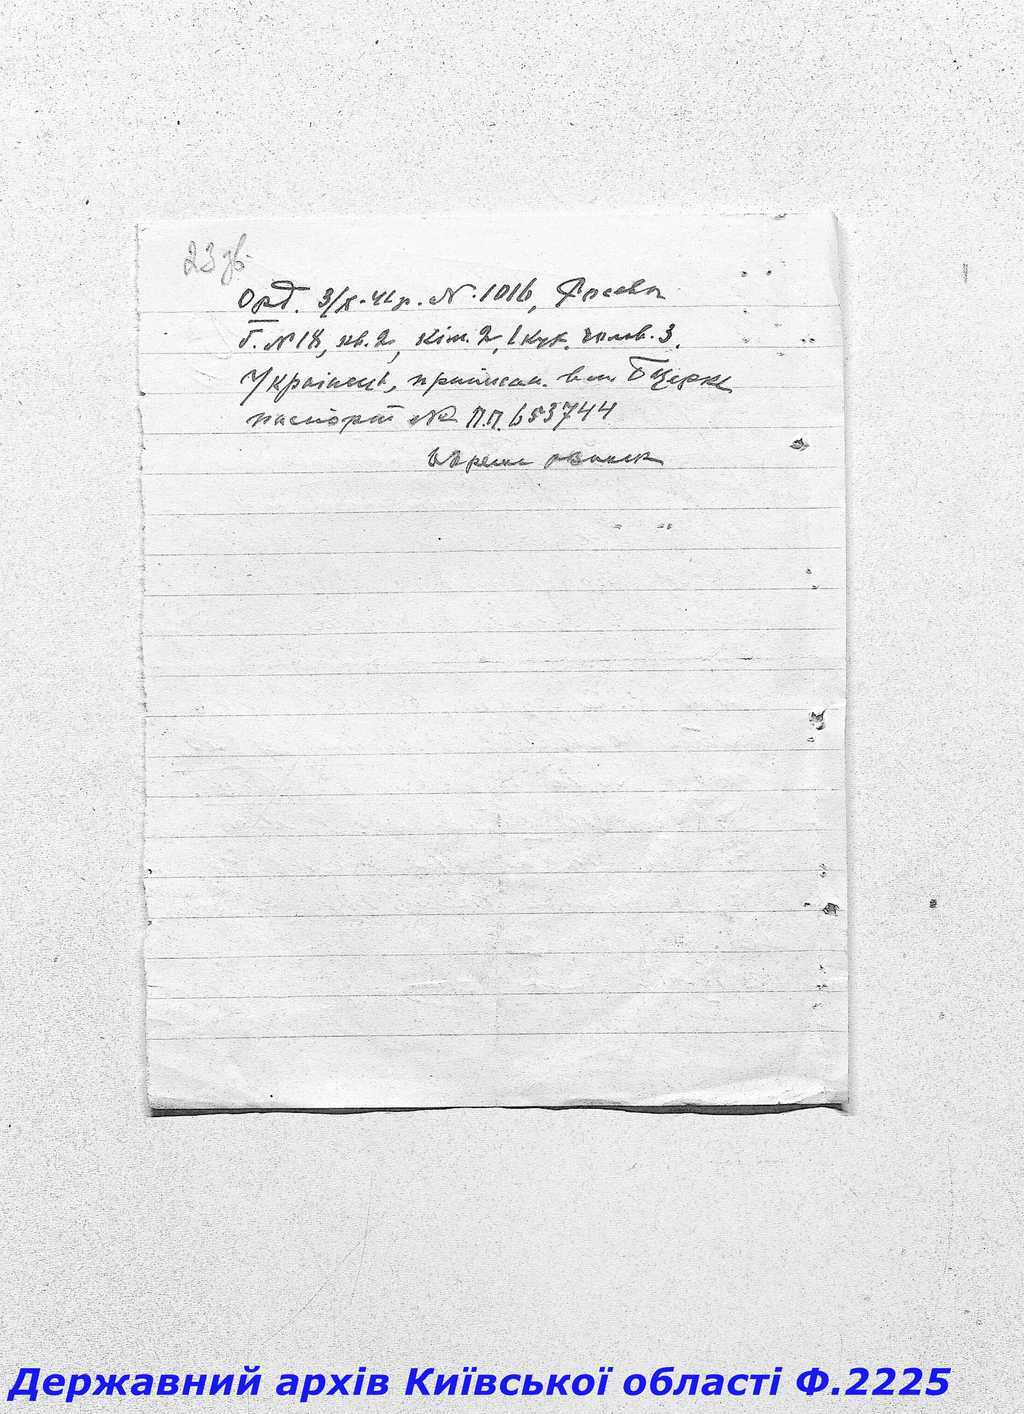 23 зв.
Орд. 3/X-41 р. № 1016,
б. № 18, кв. 2, кім. 2, 1 кух. 3.
Українець, приписан. Б Церкв
паспорт № П.П. 653744
Державний архів Київської області Ф.2225